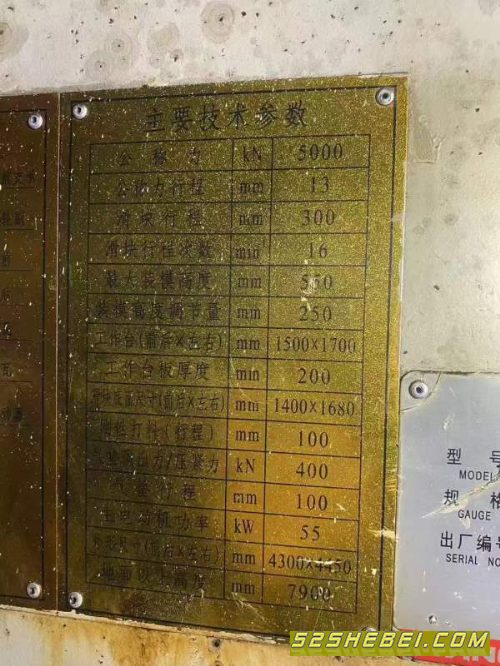 主要技术参数
公称力 kN 5000
公称力行程 mm 13
滑块行程 mm 300
滑块行程次数 min 16
最大装模高度 mm 550
装模高度调节量 mm 250
工作台(前后×左右) mm 1500×1700
工作台板厚度 mm 200
滑块底面尺寸(前后×左右) mm 1400×1680
打料(行程) mm 100
气垫压出力/压紧力 kN 400
气垫行程 mm 100
主电动机功率 kW 55
外形尺寸(前后×左右) mm 4300×4450
地面以上高度 mm 7900
型 号
MODEL
规 格
GAUGE
出厂编号
SERIAL NO
52SHEBEI.COM